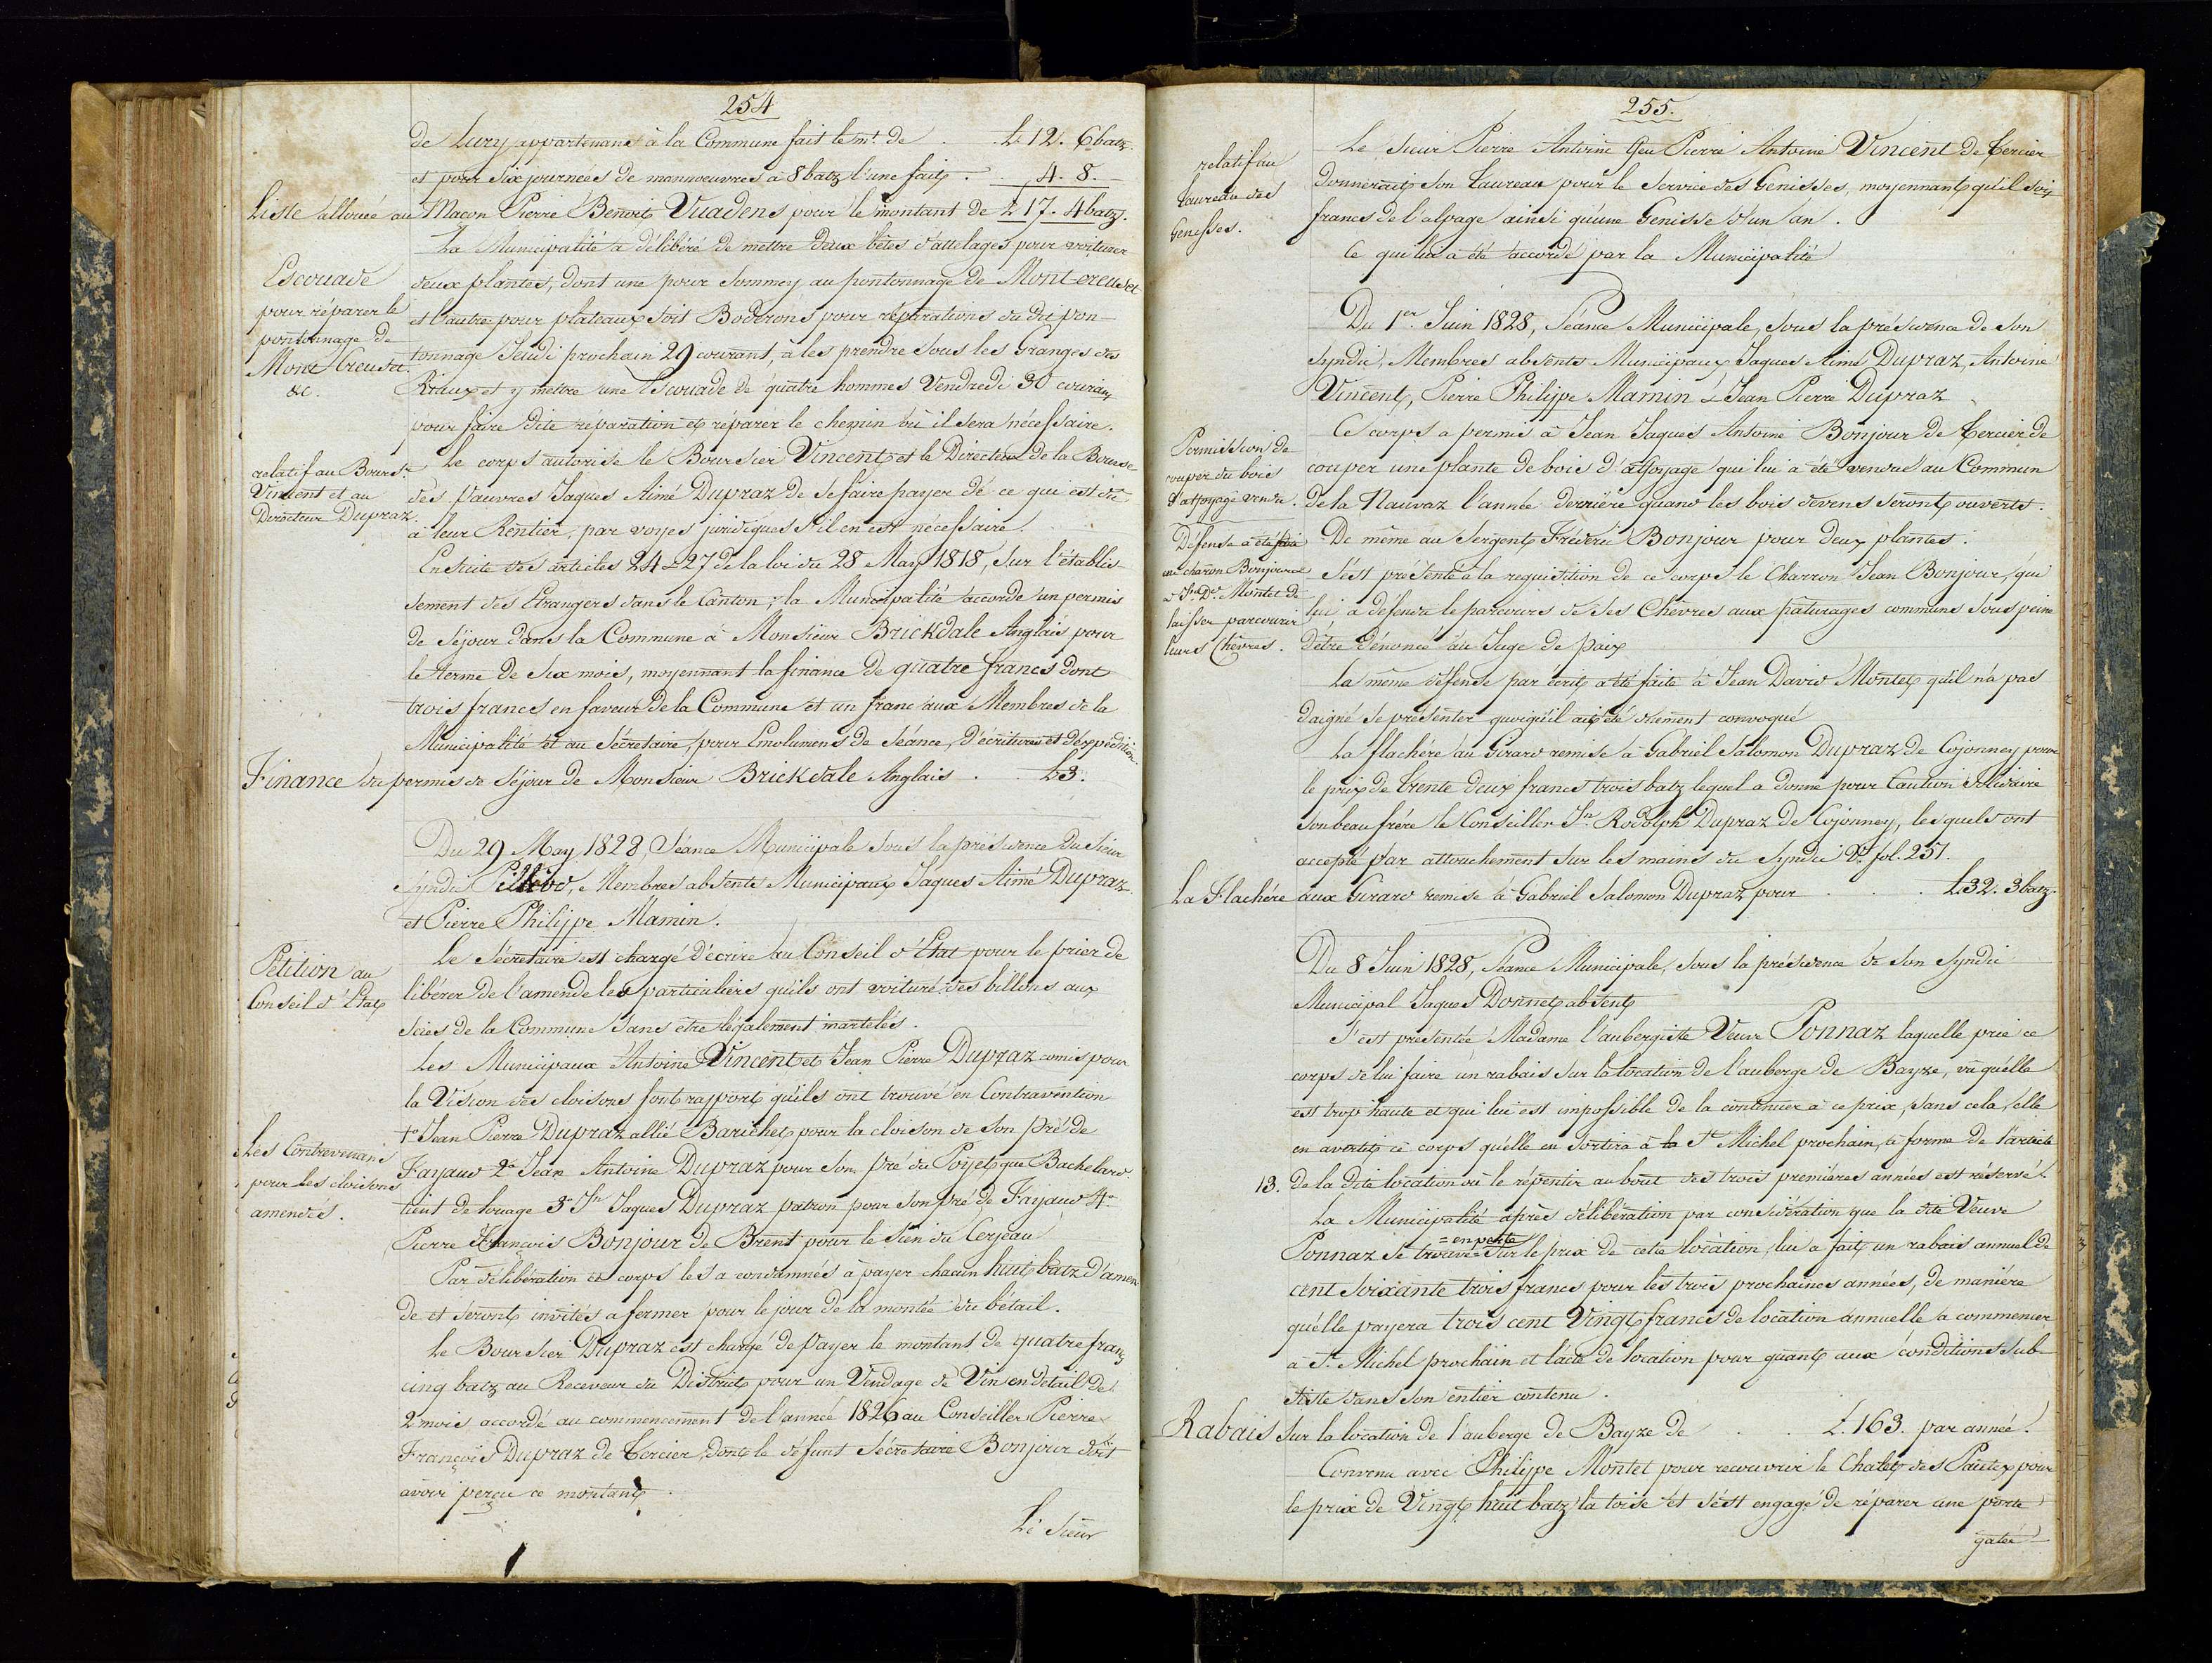 254
de Lury appartenans à la Commune fait le mt. de . L 12. 6 batz.
et pour Six journées de manoeuvres a 8 batz l'une fait . . 4. 8.
Liste allouée au Maçon Pierre Benoit Vuadens pour le montant de L 17. 4 batz.
La Municipalité a délibéré de mettre deux bêtes d'attelages pour voiturer
Escouade
pour réparer le
pontonnage de
Mont Creuset
&c.
deux plantes, dont une pour Sommey au pontonnage de Mont-creuset
et l'autre pour plateaux soit Boderons pour réparations du dit pon-
tonnage Jeudi prochain 29 courant, à les prendre sous les Granges des
Riaux et y mettre une Escouade de quatre hommes Vendredi 30 courant
pour faire dite réparation et réparer le chemin où il sera nécessaire.
relatif au Bourse.
Vincent et au
Directeur Dupraz.
Le corps autorise le Boursier Vincent et le Directeur de la Bourse
des Pauvres Jaques Aimé Dupraz de se faire payer de ce qui est dû
à leur Rentier, par voyes juridiques s'il en est nécessaire.
Ensuite des articles 24 & 27 de la loi du 28 May 1818, Sur l'établis-
sement des Etrangers dans le Canton, la Municipalité accorde un permis
de Séjour dans la Commune à Monsieur Brickdale Anglais pour
le terme de Six mois, moyennant la finance de quatre francs dont
trois francs en faveur de la Commune et un franc aux Membres de la
Municipalité et au Sécretaire, pour Emolumens de Séance, d'écritures et d'éxpedition.
Finance du permis de Séjour de Monsieur Brickdale Anglais . . L 3.
Du 29 May 1828, Séance Municipale sous la présidence du Sieur
Syndic Pilliod, Membres absents Municipaux Jaques Aimé Dupraz
et Pierre Philippe Mamin.
Pétition au
Conseil d'Etat
Le Sécretaire est chargé d'écrire au Conseil d'Etat pour le prier de
libérer de l'amende les particuliers qu'ils ont voituré des billons aux
scies de la Commune sans être légalement martelés.
Les Municipaux Antoine Vincent et Jean Pierre Dupraz comis pour
la Vision des cloisons font rapport qu'ils ont trouvé en Contravention
Les Contrevenans
pour les cloisons
amendés.
1o. Jean Pierre Dupraz allié Barichet pour la cloison de son pré de
Fayaud 2o Jean Antoine Dupraz pour Son Pré du Poyet que Bachelard
tient de louage 3o Jn Jaques Dupraz patron pour son pré de Fayaud 4o
Pierre François Bonjour de Brent pour le Sien du Cerjeau
Par délibération ce corps les a condamnés à payer chacun huit batz d'amen
de et seront invités a fermer pour le jour de la montée du bétail.
Le Boursier Dupraz est chargé de Payer le montant de quatre francs
cinq batz au Receveur du District pour un Vendage de Vin en détail de
2 mois accordé au commencement de l'année 1826 au Conseiller Pierre
François Dupraz de Tercier, dont le défunt Sécretaire Bonjour doit
avoir perçu ce montant.
Le Sieur
255.
relatif au
Taureau des
Genisses.
Le Sieur Pierre Antoine feu Pierre Antoine Vincent de Tercier
donnerait son Taureau pour le Service des Genisses, moyennant qu'il soit
francs de l'alpage ainsi qu'une Genisse d'un an.
Ce qui lui a été accordé par la Municipalité
Du 1er. Juin 1828, Séance Municipale, sous la présidence de Son
Syndic, Membres absents Municipaux Jaques Aimé Dupraz, Antoine
Vincent, Pierre Philippe Mamin & Jean Pierre Dupraz
Permission de
couper du bois
d'affoyage vendu.
Ce corps a permis à Jean Jaques Antoine Bonjour de Tercier de
couper une plante de bois d'affoyage qui lui a été vendue au Commun
de la Nauvaz l'année derrière quand les bois devens seront ouverts.
De même au Sergent Fréderic Bonjour pour deux plantes.
Défense a été faite
au charron Bonjour
& Jn. Dd. Montet de
laisser parcourir
leurs Chèvres.
S'est présenté à la requisition de ce corps le Charron Jean Bonjour, qui
lui a défendu le parcours de Ses Chèvres aux pâturages communs sous peine
d'être dénoncé au Juge de Paix
La même défense par écrit a été faite à Jean David Montet qu'il n'a pas
daigné se présenter quoiqu'il ait été dûement convoqué
La flachère au Girard remise à Gabriel Salomon Dupraz de Cojonney pour
le prix de trente deux francs trois batz lequel a donné pour Caution Solidaire
son beau frére le Conseiller Jn. Rodolph Dupraz de Cojonney, lesquels ont
accepté par attouchement sur les mains du Syndic Vt. fol. 251.
La Flachère aux Girard remise à Gabriel Salomon Dupraz pour . . . L 32. 3 batz.
Du 8 Juin 1828, Séance Municipale, sous la présidence de Son Syndic
Municipal Jaques Donnet absent
S'est présentée Madame l'aubergiste Veuve Ponnaz laquelle prie ce
corps de lui faire un rabais sur la location de l'auberge de Bayze, vû qu'elle
est trop haute et qui lui est impossible de la continuer à ce prix, sans cela, elle
en avertit ce corps qu'elle en sortira à la St. Michel prochain, à forme de l'article
13. de la dite location où le répentir au bout des trois premières années est réservé.
La Municipalité après délibération par considération que la dite Veuve
= en perte
Ponnaz se trouve = sur le prix de cette location, lui a fait un rabais annuel de
cent soixante trois francs pour les trois prochaines années, de manière
qu'elle payera trois cent Vingt francs de location annuelle à commencer
à St. Michel prochain et l'acte de location pour quant aux conditions sub-
siste dans son entier contenu.
Rabais sur la location de l'auberge de Bayze de . . L. 163. par année.
Convenu avec Philippe Montet pour recouvrir le Chalet des Pautex pour
le prix de Vingt huit batz la toise et s'est engagé de réparer une porte
gatée